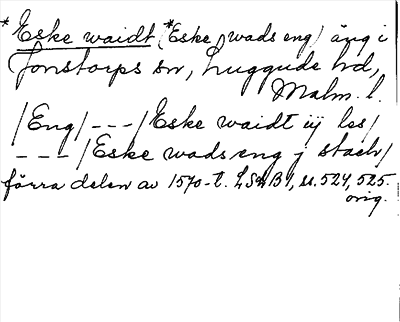 *Eske waidt (*Eske wads eng) äng i
Jonstorps sn, Luggude hd,
Malm. l.
/Eng/---/Eske waidt iij les/
---/Eske wads eng j stach/
förra delen av 1570-t. LSkB I, ss. 524, 525.
orig.